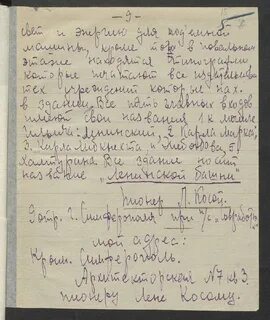 — 9 —
свет и энергию для подъемной
машины, кроме того в подвальном
этаже находятся типографии
которые печатают все издательства
тех учреждений которые нах.
в здании. Все пять главных входов
имеют свои названия 1 к
Ленинский, 2 Карла Маркса,
3. Карла Либкнехта и 5)
Халтурина Все здание носит
название „Ленинской башни"
Пионер Л. Косой.
3 отр. г. Симферополя при
мой адрес:
Крым. Симферополь.
Архитекторская №7 кв 3.
пионеру Лене Косому.